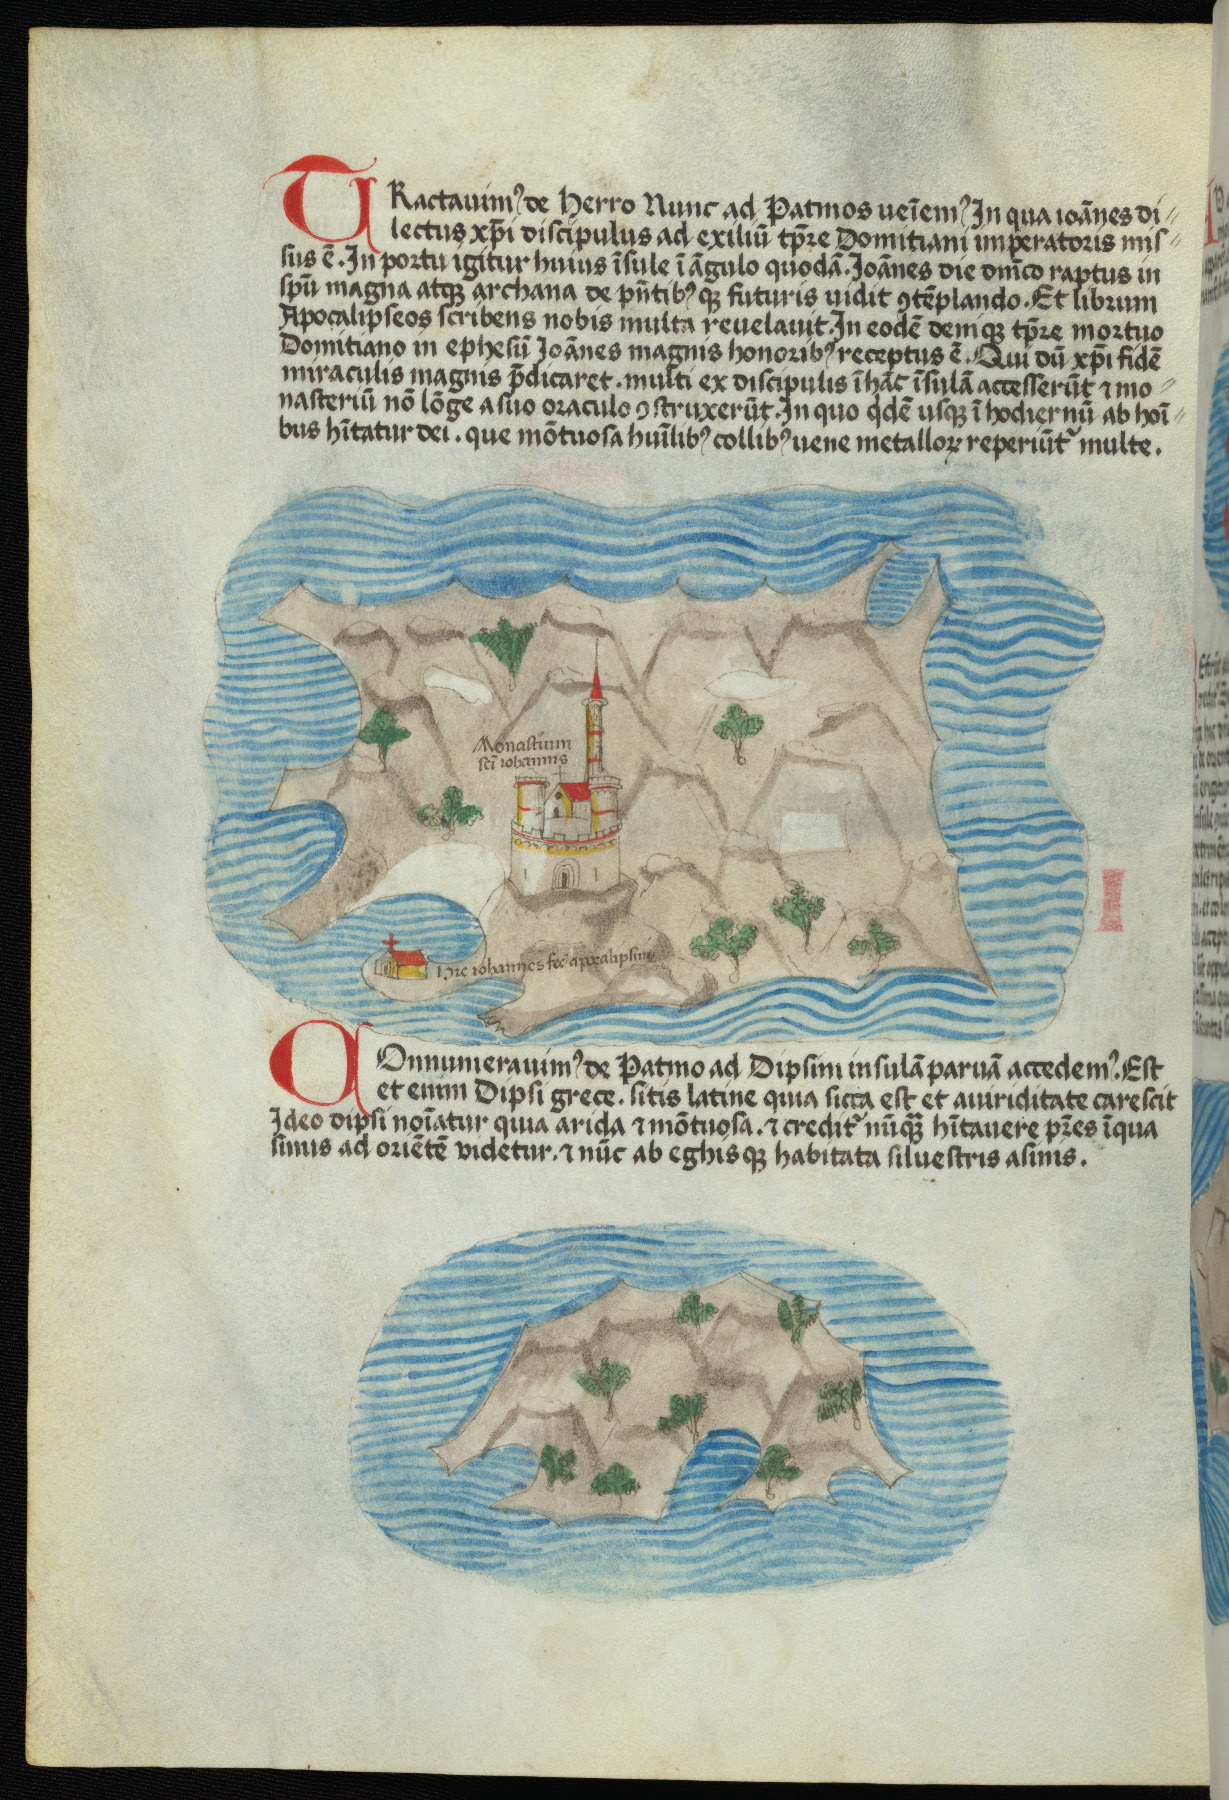 TRactauimꝰ de Herro Nunc ad Patmos ueīemꝰ In qua ioānes di⸗
lectus xp̄i discipulus ad exiliū tp̄re Domitiani imperatoris mis⸗
sus ē. In portu igitur huius īsule ī āgulo quodā. Joānes die dn̄ico raptus in
sp̄u magna atqꝫ archana de pn̄tibꝰ qꝫ futuris uidit ꝯtēplando. Et librum
Apocalipseos scribens nobis multa reuelauit. In eodē deniqꝫ tp̄re mortuo
Domitiano in ephesū Joānes magnis honoribꝰ receptus ē. Qui dū xp̄i fidē
miraculis magnis p̄dicaret. multi ex discipulis ī hāc īsulā accesserūt ⁊ mo⸗
nasteriū nō lōge a suo oraculo ꝯstruxerūt. In quo q̇dē usqꝫ ī hodiernū ab hoī⸗
bus hītatur dei. que mōtuosa huīlibꝰ collibꝰ uene metalloꝝ reperiūt᷑ multe.
Monastīum
scī iohannis
Hic iohannes fec̄ apocalipsim
COnnumerauimꝰ de Patmo ad Dipsim insulā paruā accedemꝰ. Est
et enim Dipsi grece. sitis latine quia sicca est et auiriditate carescit
Ideo dipsi noīatur quia arida ⁊ mōtuosa. ⁊ credit᷑ nūqꝫ hītauere pr̄es ī qua
sinus ad oriētē videtur. ⁊ nūc ab eghisqꝫ habitata siluestris asinis.